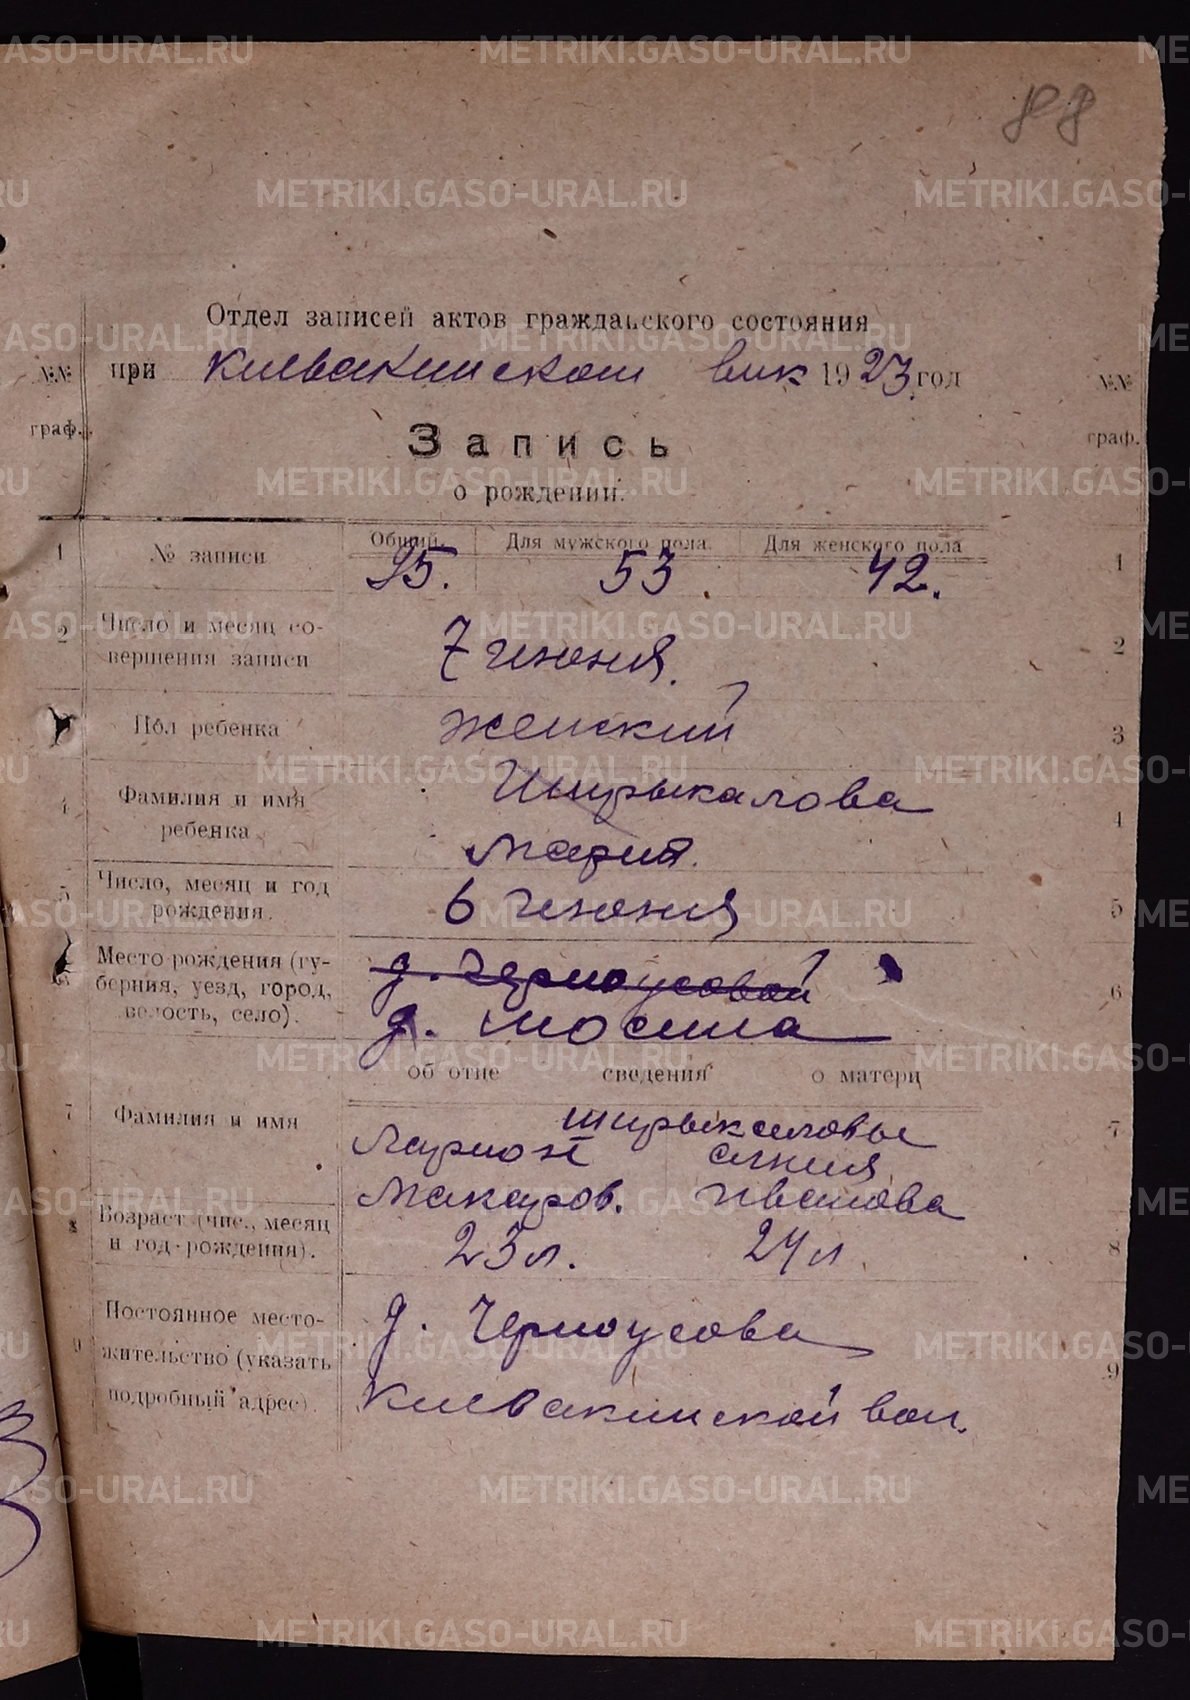 88
Отдел записей актов гражданского состояния
при Клевакинском вик 1923 год
№№ граф.
№№ граф.
Запись
о рождении.
Общий. Для мужского пола. Для женского пола
1 № записи 95. 53. 42. 1
2 Число и месяц со-
вершения записи 7 июня. 2
Пол ребенка женский 3
4 Фамилия и имя
ребенка Ширыкалова
Мария. 4
5 Число, месяц и год
рождения. 6 июня 5
Место рождения (гу-
берния, уезд, город,
волость, село). д. Черноусовой
д. Мосина 6
об отце сведения о матери
7 Фамилия и имя Ширыкаловы 7
Ларион Анния
Макаров. Иванова
8 Возраст (чис., месяц
и год рождения). 23 л. 24 л. 8
9 Постоянное место-
жительство (указать
подробный адрес). д. Черноусова
Клевакинской вол. 9
METRIKI.GASO-URAL.RU